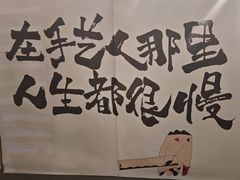 在手艺人那里
人生都很慢